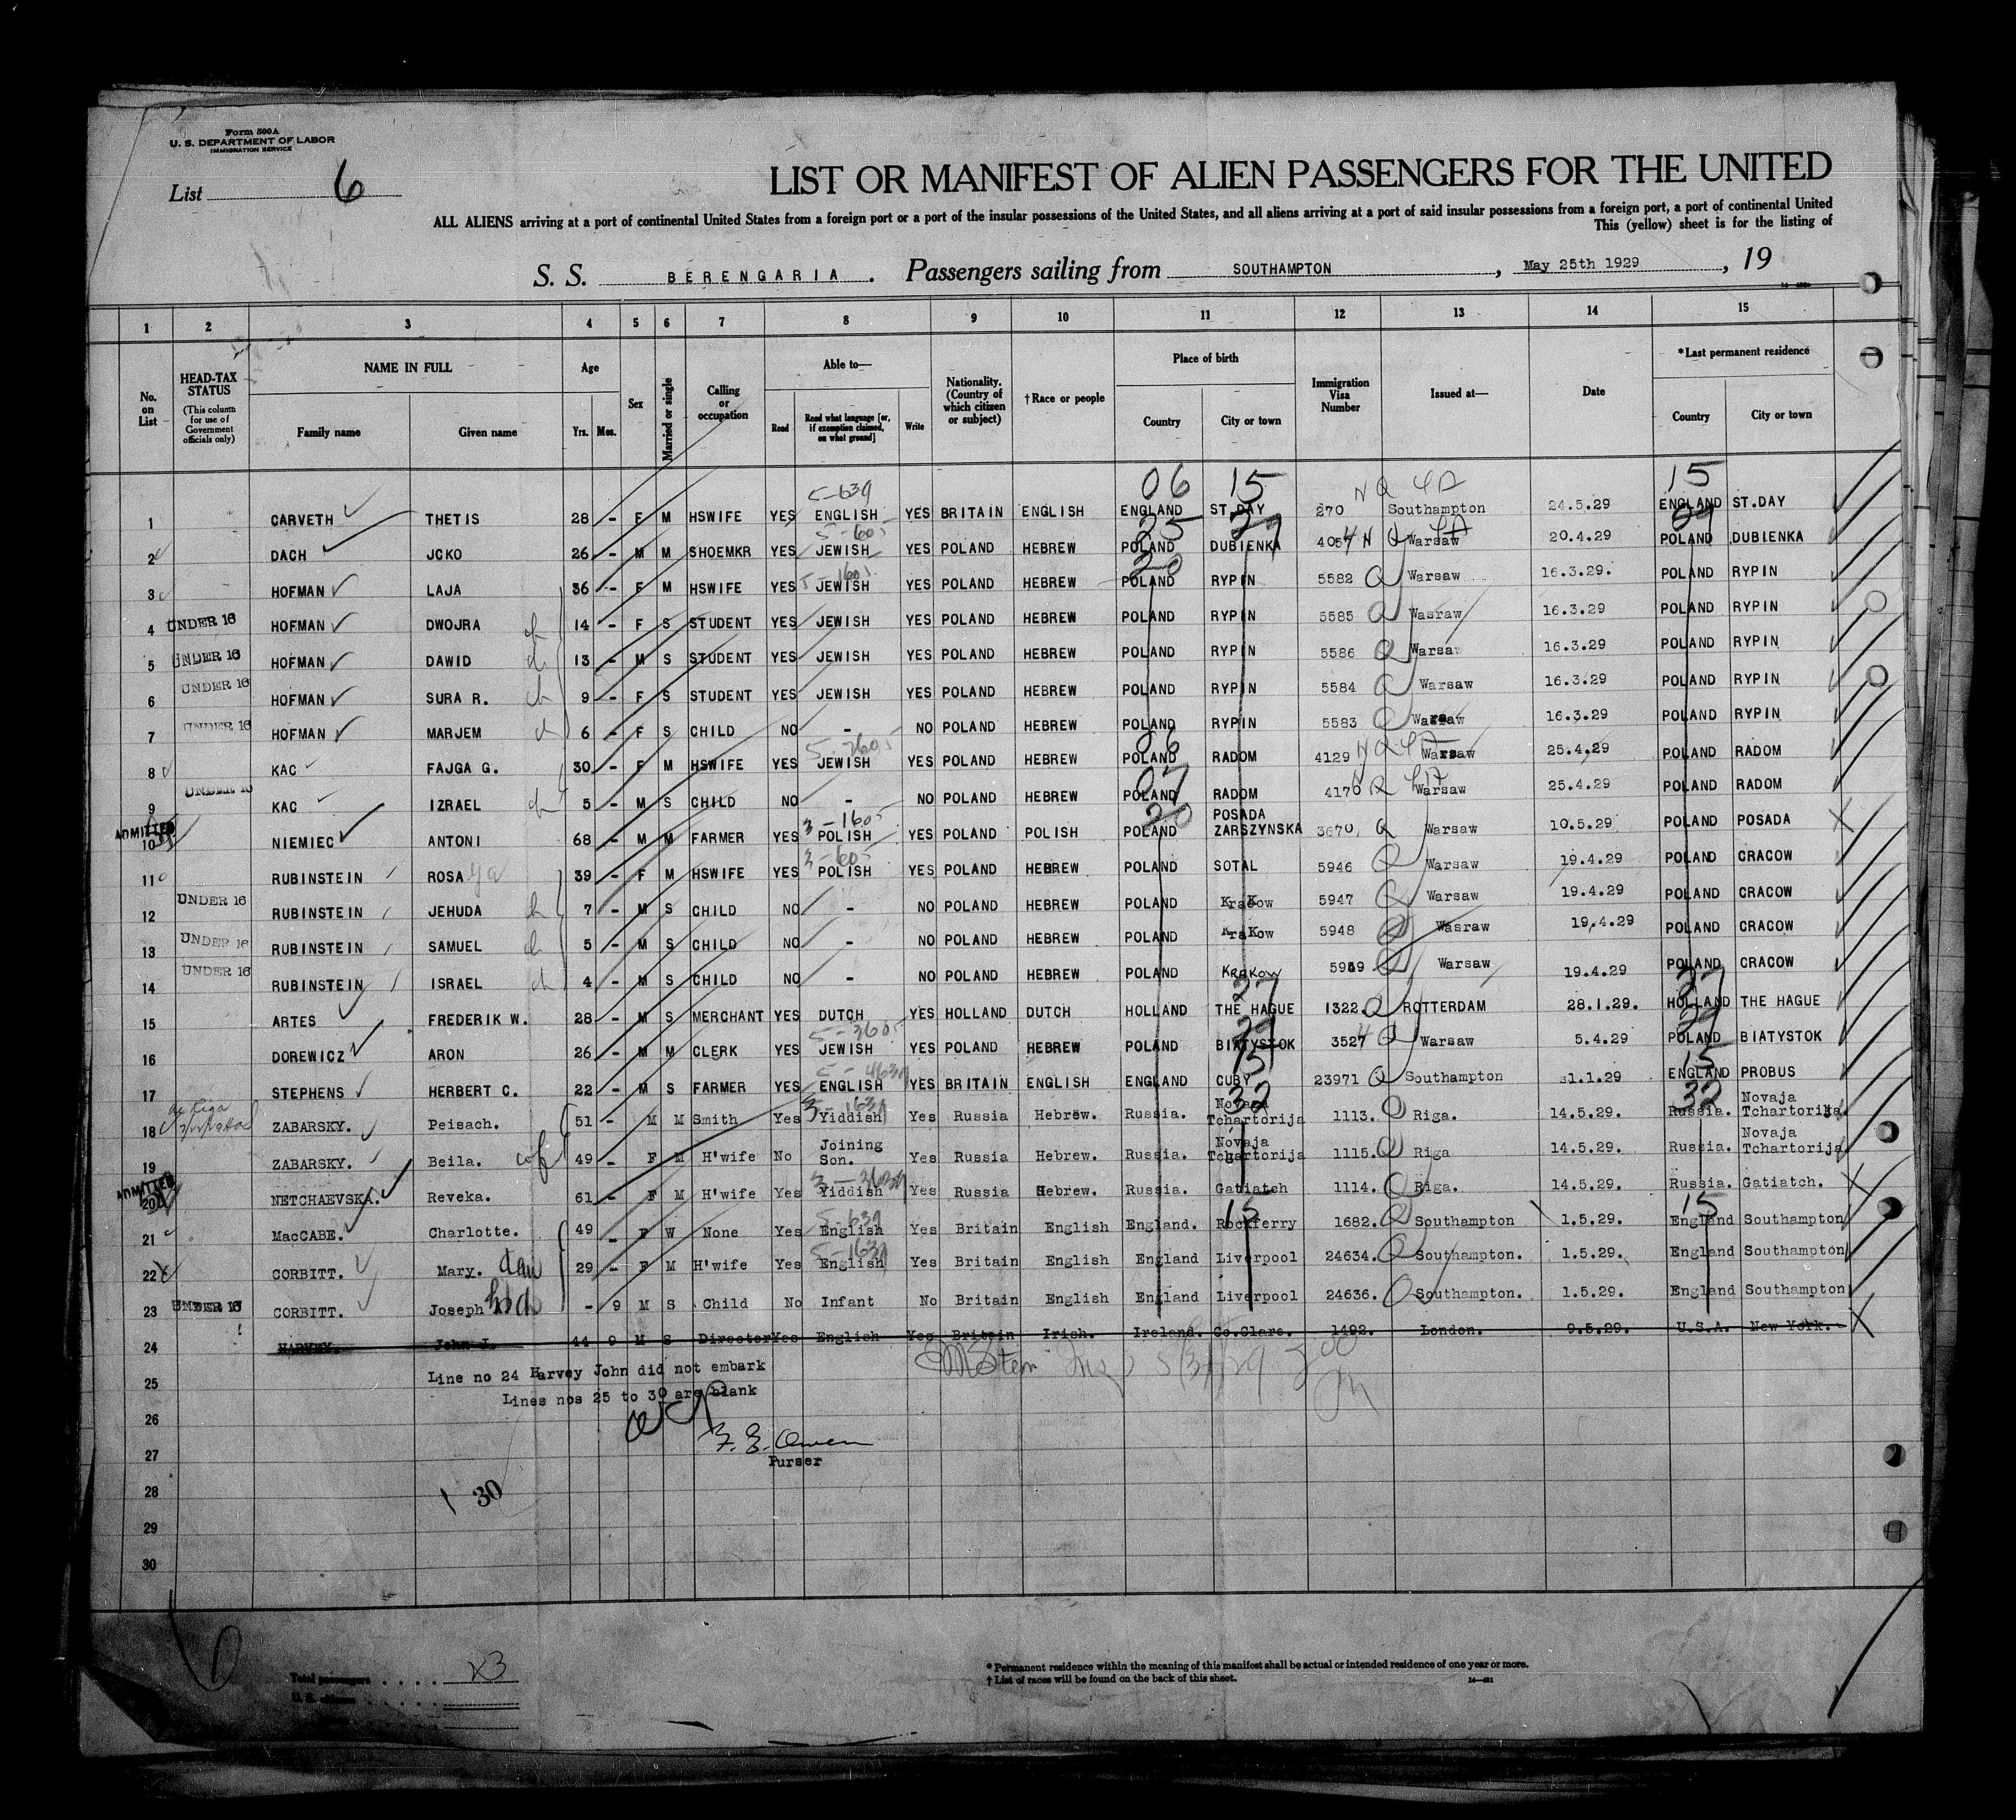 Form 500A
U. S. DEPARTMENT OF LABOR
IMMIGRATION SERVICE
List 6
LIST OR MANIFEST OF ALIEN PASSENGERS FOR THE UNITED
ALL ALIENS arriving at a port of continental United States from a foreign port or a port of the insular possessions of the United States, and all aliens arriving at a port of said insular possessions from a foreign port, a port of continental United
This (yellow) sheet is for the listing of
S. S. BERENGARIA. Passengers sailing from SOUTHAMPTON, May 25th 1929, 19
1 2 3 4 5 6 7 8 9 10 11 12 13 14 15
No. on List
HEAD-TAX STATUS
(This column for use of Government officials only)
NAME IN FULL
Family name Given name
Age
Yrs. Mos.
Sex
Married or single
Calling or occupation
Able to—
Read
Read what language [or, if exemption claimed, on what ground]
Write
Nationality. (Country of which citizen or subject)
†Race or people
Place of birth
Country City or town
Immigration Visa Number
Issued at—
Date
*Last permanent residence
Country City or town
5-639 06 15 NQ 15
1 CARVETH THETIS 28 - F M HSWIFE YES ENGLISH YES BRITAIN ENGLISH ENGLAND ST.DAY 270 Southampton 24.5.29 ENGLAND ST.DAY
5-605 25 27
2 DACH JCKO 26 - M M SHOEMKR YES JEWISH YES POLAND HEBREW POLAND DUBIENKA 4054 Warsaw 20.4.29 POLAND DUBIENKA
5-1605 20
3 HOFMAN LAJA 36 - F M HSWIFE YES JEWISH YES POLAND HEBREW POLAND RYPIN 5582 Warsaw 16.3.29. POLAND RYPIN
4 UNDER 16 HOFMAN DWOJRA 14 - F S STUDENT YES JEWISH YES POLAND HEBREW POLAND RYPIN 5585 Wasraw 16.3.29 POLAND RYPIN
5 UNDER 16 HOFMAN DAWID 13 - M S STUDENT YES JEWISH YES POLAND HEBREW POLAND RYPIN 5586 Warsaw 16.3.29 POLAND RYPIN
6 UNDER 16 HOFMAN SURA R. 9 - F S STUDENT YES JEWISH YES POLAND HEBREW POLAND RYPIN 5584 Warsaw 16.3.29 POLAND RYPIN
7 UNDER 16 HOFMAN MARJEM 6 - F S CHILD NO - NO POLAND HEBREW POLAND RYPIN 5583 Warsaw 16.3.29 POLAND RYPIN
8 KAC FAJGA G. 30 - F M HSWIFE YES JEWISH YES POLAND HEBREW POLAND RADOM 4129 Warsaw 25.4.29 POLAND RADOM
9 UNDER 16 KAC IZRAEL 5 - M S CHILD NO - NO POLAND HEBREW POLAND RADOM 4170 Warsaw 25.4.29 POLAND RADOM
ADMITTED 3-1605 20 POSADA
10 NIEMIEC ANTONI 68 - M M FARMER YES POLISH YES POLAND POLISH POLAND ZARSZYNSKA 3670 Warsaw 10.5.29 POLAND POSADA
3-605
11 RUBINSTEIN ROSA 39 - F M HSWIFE YES POLISH YES POLAND HEBREW POLAND SOTAL 5946 Warsaw 19.4.29 POLAND CRACOW
12 UNDER 16 RUBINSTEIN JEHUDA 7 - M S CHILD NO - NO POLAND HEBREW POLAND KraKow 5947 Warsaw 19.4.29 POLAND CRACOW
13 UNDER 16 RUBINSTEIN SAMUEL 5 - M S CHILD NO - NO POLAND HEBREW POLAND KraKow 5948 Wasraw 19.4.29 POLAND CRACOW
14 UNDER 16 RUBINSTEIN ISRAEL 4 - M S CHILD NO - NO POLAND HEBREW POLAND Krakow 5949 Warsaw 19.4.29 POLAND CRACOW
27 27
15 ARTES FREDERIK W. 28 - M S MERCHANT YES DUTCH YES HOLLAND DUTCH HOLLAND THE HAGUE 1322. ROTTERDAM 28.1.29. HOLLAND THE HAGUE
5-3605
16 DOREWICZ ARON 26 - M M CLERK YES JEWISH YES POLAND HEBREW POLAND BIATYSTOK 3527 Warsaw 5.4.29 POLAND BIATYSTOK
15 15
17 STEPHENS HERBERT C. 22 - M S FARMER YES ENGLISH YES BRITAIN ENGLISH ENGLAND CUBY 23971 Southampton 31.1.29 ENGLAND PROBUS
32 32
18 ZABARSKY. Peisach. 51 - M M Smith Yes Yiddish Yes Russia Hebrew. Russia. Novaja Tchartorija 1113. Riga. 14.5.29. Russia. Novaja Tchartorija.
19 ZABARSKY. Beila. wf 49 - F M H'wife No Joining Son. Yes Russia Hebrew. Russia. Novaja Tchartorija 1115. Riga 14.5.29. Russia. Novaja Tchartorija
ADMITTED
20 NETCHAEVSKA. Reveka. 61 - F M H'wife Yes Yiddish Yes Russia Hebrew. Russia. Gatiatch 1114. Riga. 14.5.29. Russia. Gatiatch.
5-639 15 15
21 MacCABE. Charlotte. 49 - F W None Yes English Yes Britain English England. Rockferry 1682. Southampton 1.5.29. England Southampton
22 CORBITT. Mary. dau 29 - F M H'wife Yes English Yes Britain English England Liverpool 24634. Southampton. 1.5.29. England Southampton
23 UNDER 16 CORBITT. Joseph - 9 M S Child No Infant No Britain English England Liverpool 24636. Southampton. 1.5.29. England Southampton
24 HARVEY. John J. 44 9 M S Director Yes English Yes Britain Irish. Ireland. Co.Clare. 1492. London. 9.5.29. U.S.A. New York.
Line no 24 Harvey John did not embark
25
Lines nos 25 to 30 are blank
26
F. E. Owen
27 Purser
28
1 30
29
30
Total passengers . . . . 23
U. S. citizens . . . . .
*Permanent residence within the meaning of this manifest shall be actual or intended residence of one year or more.
†List of races will be found on the back of this sheet.